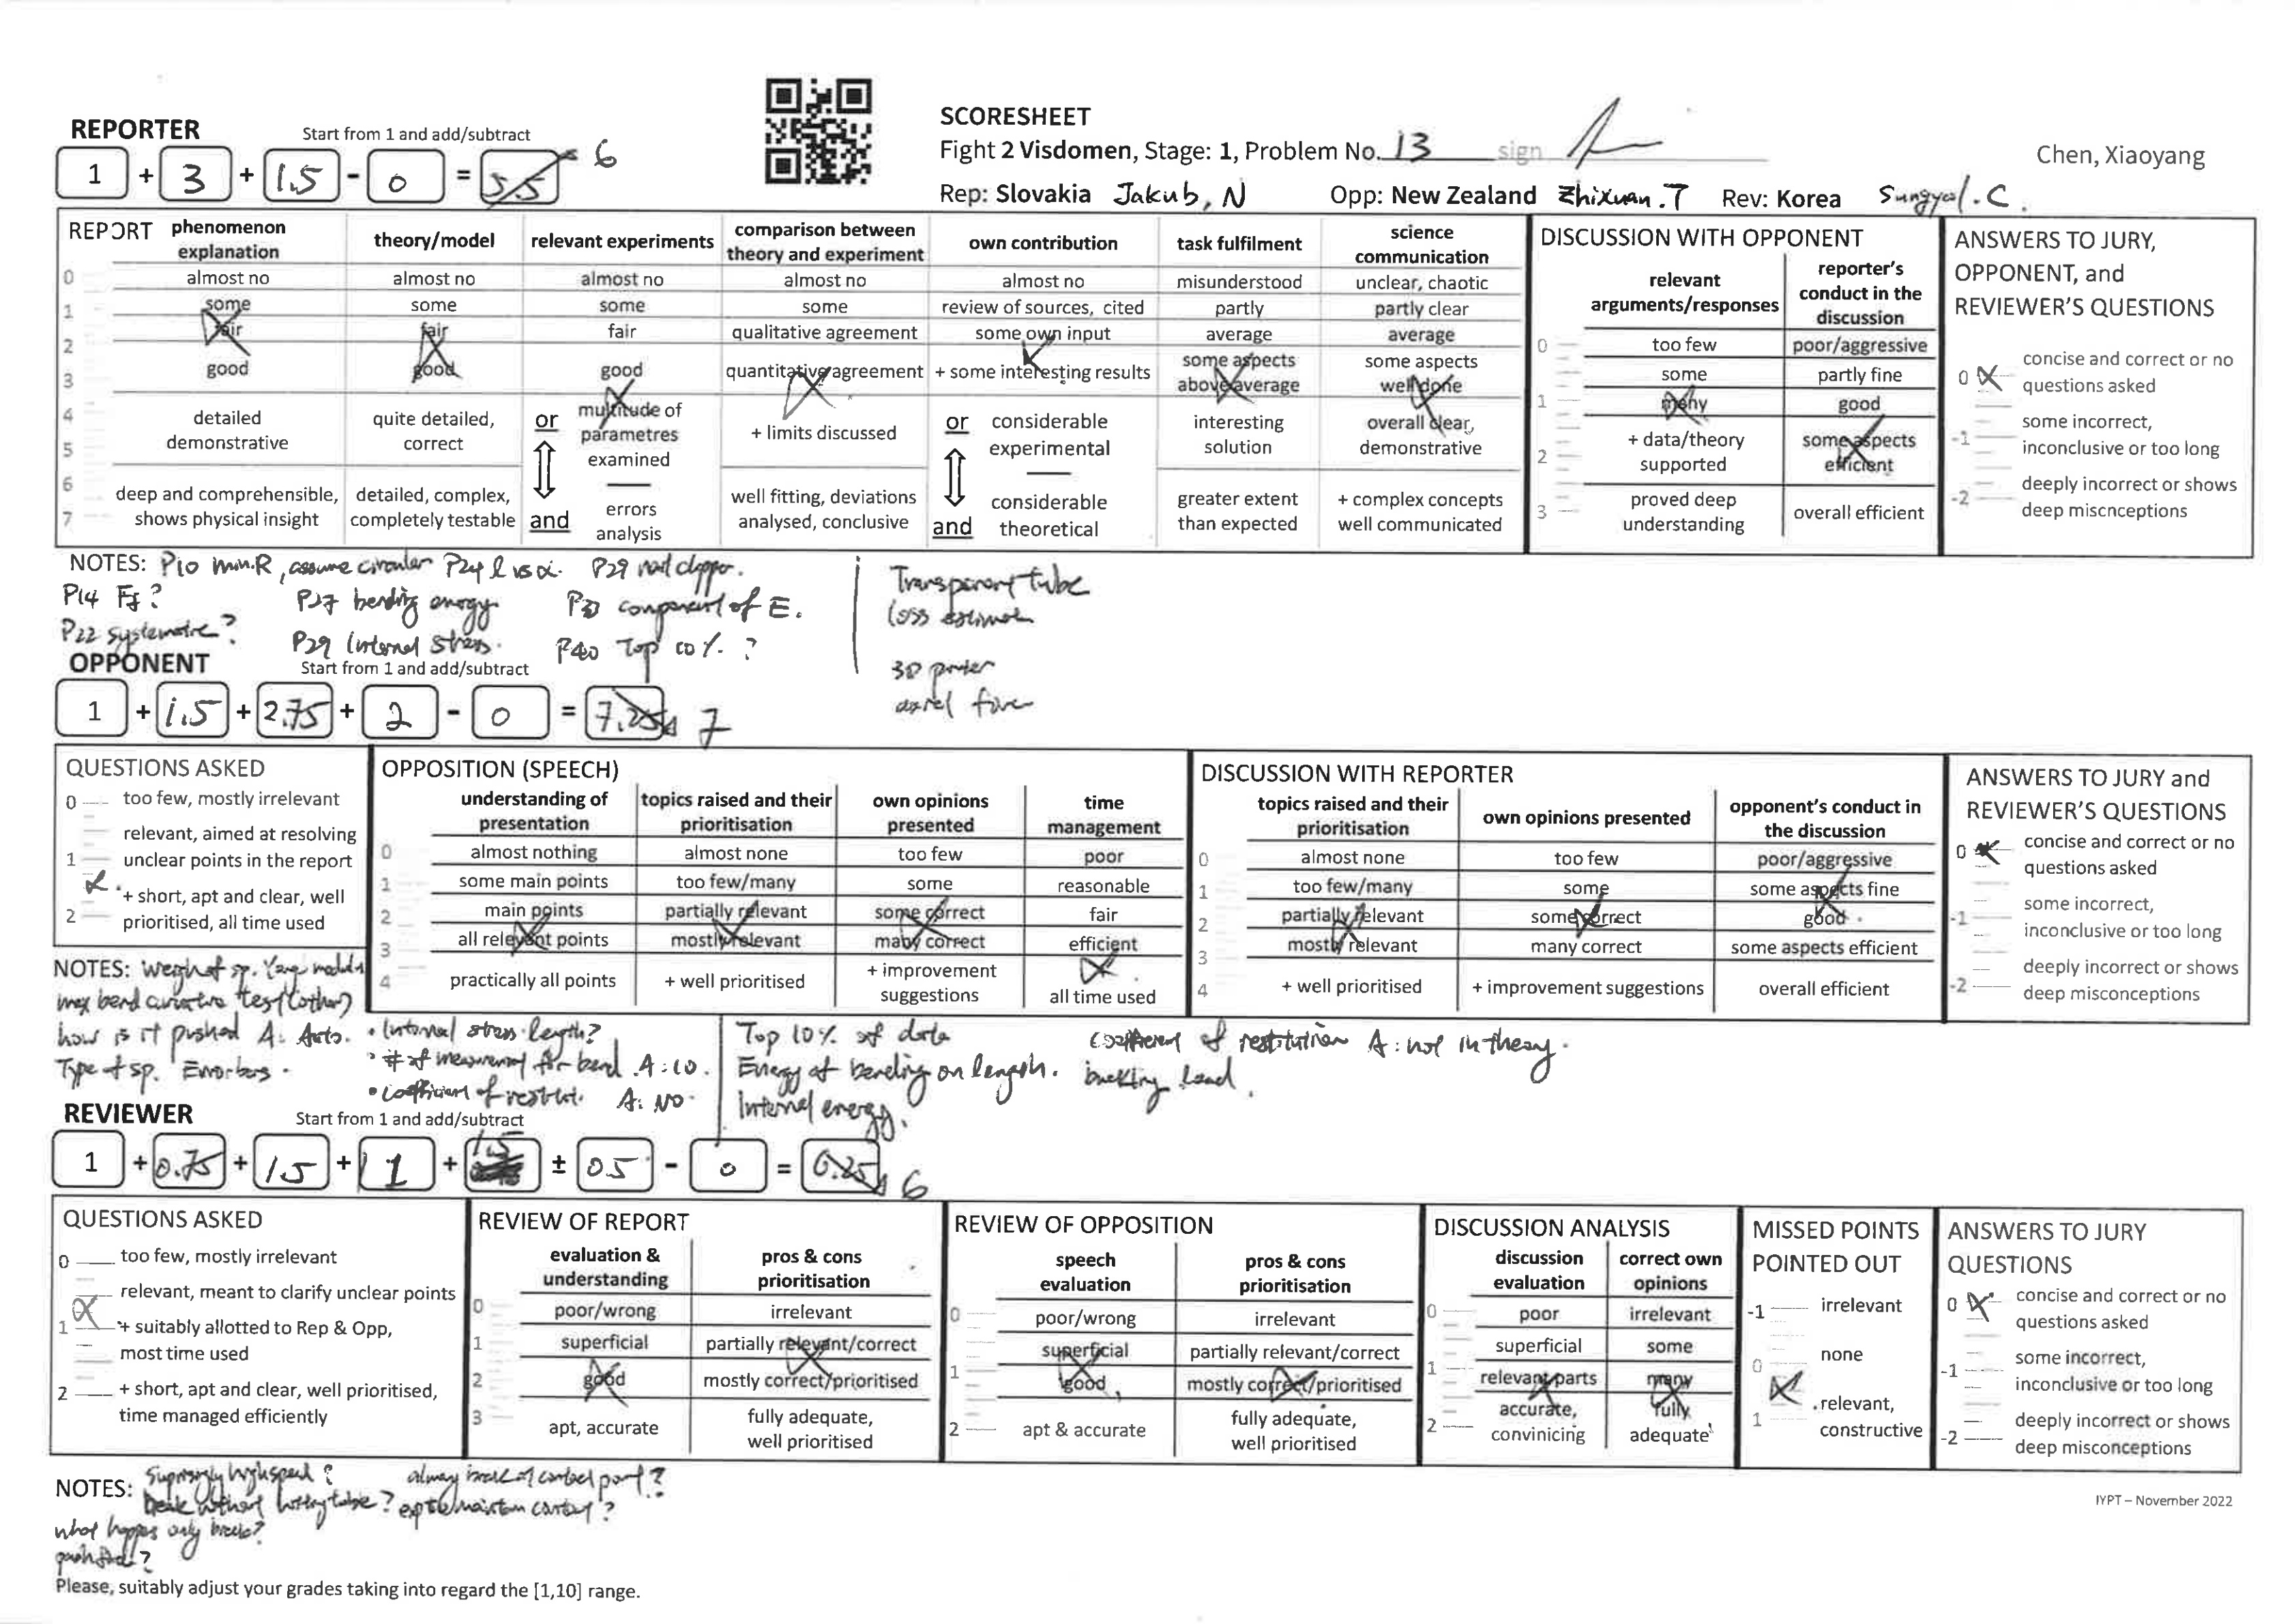 SCORESHEET
Fight 2 Visdomen, Stage: 1, Problem No. 13 sign
Chen, Xiaoyang
Rep: Slovakia Jakub, N Opp: New Zealand Zhixuan.T Rev: Korea C.
REPORTER Start from 1 and add/subtract
1 + 3 + 1.5 - 0 = 5.5 6
REPORT
phenomenon explanation
theory/model
relevant experiments
comparison between theory and experiment
own contribution
task fulfilment
science communication
0 almost no almost no almost no almost no almost no misunderstood unclear, chaotic
1 some some some some review of sources, cited partly partly clear
fair fair fair qualitative agreement some own input average average
2
good good good quantitative agreement + some interesting results some aspects above average some aspects well done
3
4 detailed demonstrative quite detailed, correct or multitude of parametres examined + limits discussed or considerable experimental interesting solution overall clear, demonstrative
5
6 deep and comprehensible, shows physical insight detailed, complex, completely testable and errors analysis well fitting, deviations analysed, conclusive and considerable theoretical greater extent than expected + complex concepts well communicated
7
DISCUSSION WITH OPPONENT
relevant arguments/responses
reporter's conduct in the discussion
0 too few poor/aggressive
some partly fine
1 many good
+ data/theory supported some aspects efficient
2
3 proved deep understanding overall efficient
ANSWERS TO JURY,
OPPONENT, and
REVIEWER'S QUESTIONS
0 concise and correct or no
questions asked
some incorrect,
-1 inconclusive or too long
deeply incorrect or shows
-2 deep miscnceptions
NOTES: P10 min.R, assume circular P24 l vs α. P29 nail clipper.
P14 Ff? P27 bending energy component of E.
P22 systematic? P29 Internal stress. P40 Top 10%?
Transparent tube
loss estimate
3D printer
axial force
OPPONENT Start from 1 and add/subtract
1 + 1.5 + 2.75 + 2 - 0 = 7.25 7
QUESTIONS ASKED
0 too few, mostly irrelevant
relevant, aimed at resolving
1 unclear points in the report
+ short, apt and clear, well
2 prioritised, all time used
OPPOSITION (SPEECH)
understanding of presentation
topics raised and their prioritisation
own opinions presented
time management
0 almost nothing almost none too few poor
1 some main points too few/many some reasonable
2 main points partially relevant some correct fair
3 all relevant points mostly relevant many correct efficient
4 practically all points + well prioritised + improvement suggestions all time used
DISCUSSION WITH REPORTER
topics raised and their prioritisation
own opinions presented
opponent's conduct in the discussion
0 almost none too few poor/aggressive
1 too few/many some some aspects fine
2 partially relevant some correct good
3 mostly relevant many correct some aspects efficient
4 + well prioritised + improvement suggestions overall efficient
ANSWERS TO JURY and
REVIEWER'S QUESTIONS
0 concise and correct or no
questions asked
some incorrect,
-1 inconclusive or too long
deeply incorrect or shows
-2 deep misconceptions
NOTES: Weight of sp.
max bend test (other)
how is it pushed A: Auto.
Type of sp. Error bars.
• Internal stress length?
• # of measurement for bend. A: 10.
• coefficient of restitut. A: No.
Top 10% of data
Energy of bending on length.
Internal energy.
Coefficient of restitution A: not in theory.
buckling load.
REVIEWER Start from 1 and add/subtract
1 + 0.75 + 1.5 + 1 + 1.5 ± 0.5 - 0 = 6.25 6
QUESTIONS ASKED
0 too few, mostly irrelevant
relevant, meant to clarify unclear points
1 + suitably allotted to Rep & Opp,
most time used
2 + short, apt and clear, well prioritised,
time managed efficiently
REVIEW OF REPORT
evaluation & understanding
pros & cons prioritisation
0 poor/wrong irrelevant
1 superficial partially relevant/correct
2 good mostly correct/prioritised
3 apt, accurate fully adequate, well prioritised
REVIEW OF OPPOSITION
speech evaluation
pros & cons prioritisation
0 poor/wrong irrelevant
superficial partially relevant/correct
1 good mostly correct/prioritised
2 apt & accurate fully adequate, well prioritised
DISCUSSION ANALYSIS
discussion evaluation
correct own opinions
0 poor irrelevant
superficial some
1 relevant parts many
2 accurate, convinicing fully adequate
MISSED POINTS
POINTED OUT
-1 irrelevant
0 none
1 relevant,
constructive
ANSWERS TO JURY
QUESTIONS
0 concise and correct or no
questions asked
-1 some incorrect,
inconclusive or too long
deeply incorrect or shows
-2 deep misconceptions
NOTES: Suprisingly high speed? always break at contact point?
break without hitting tube? maintain contact?
what happes only break?
IYPT – November 2022
Please, suitably adjust your grades taking into regard the [1,10] range.